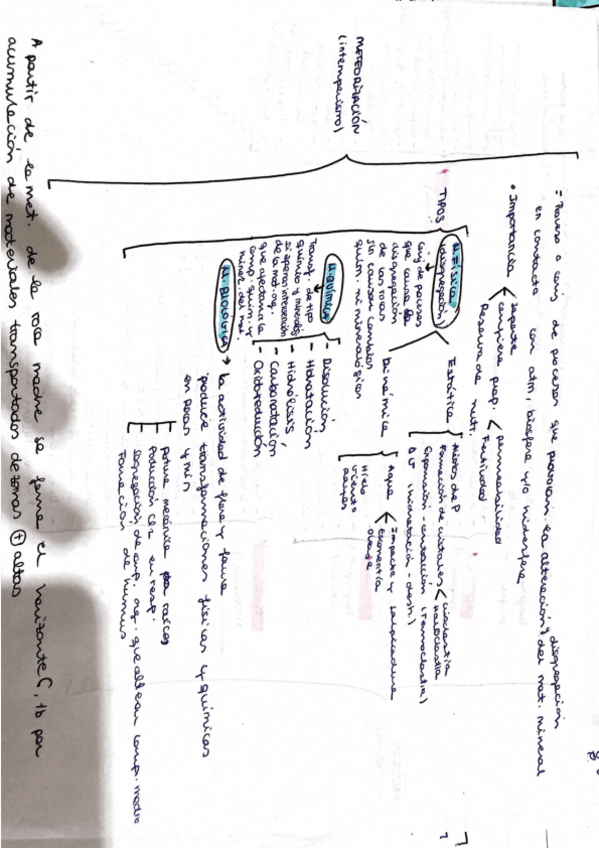 METEORIZACIÓN
(intemperismo)
= Proceso o conj. de procesos que provocan la alteración y disgregación del mat. mineral
en contacto con atm, biosfera y/o hidrosfera
• Importancia < Soporte
Confiere prop. < Permeabilidad
Fertilidad
Reserva de nutr.
• TIPOS
M. Física
(disgregación)
Conj de procesos
que causa la
disgregación
de las rocas
sin causar cambios
quím. ni mineralógicos
Estática
Alivios de P
Formación de cristales < crioclastia
haloclastia
Expansión - contracción (termoclastia)
ΔV (hidratación - desh.)
Dinámica
Agua < Impacto y salpicadura
Escorrentía
Oleaje
Hielo
Viento
M. Química
Transf. de tipo
químico y mineral
si apenas intervención
de la mat. org.
que afectan a la
comp. quím. y
miner. del mat.
- Disolución
- Hidratación
- Hidrólisis
- Carbonatación
- Oxidorreducción
M. Biológica → la actividad de flora y fauna
produce transformaciones físicas y químicas
en rocas y min
Acción mecánica por raíces
Producción CO2 en resp.
Segregación de comp. org. que alteran comp. medio
Formación de humus
A partir de la met. de la roca madre se forma el horizonte C, tb por
acumulación de materiales transportados de zonas (+) altas